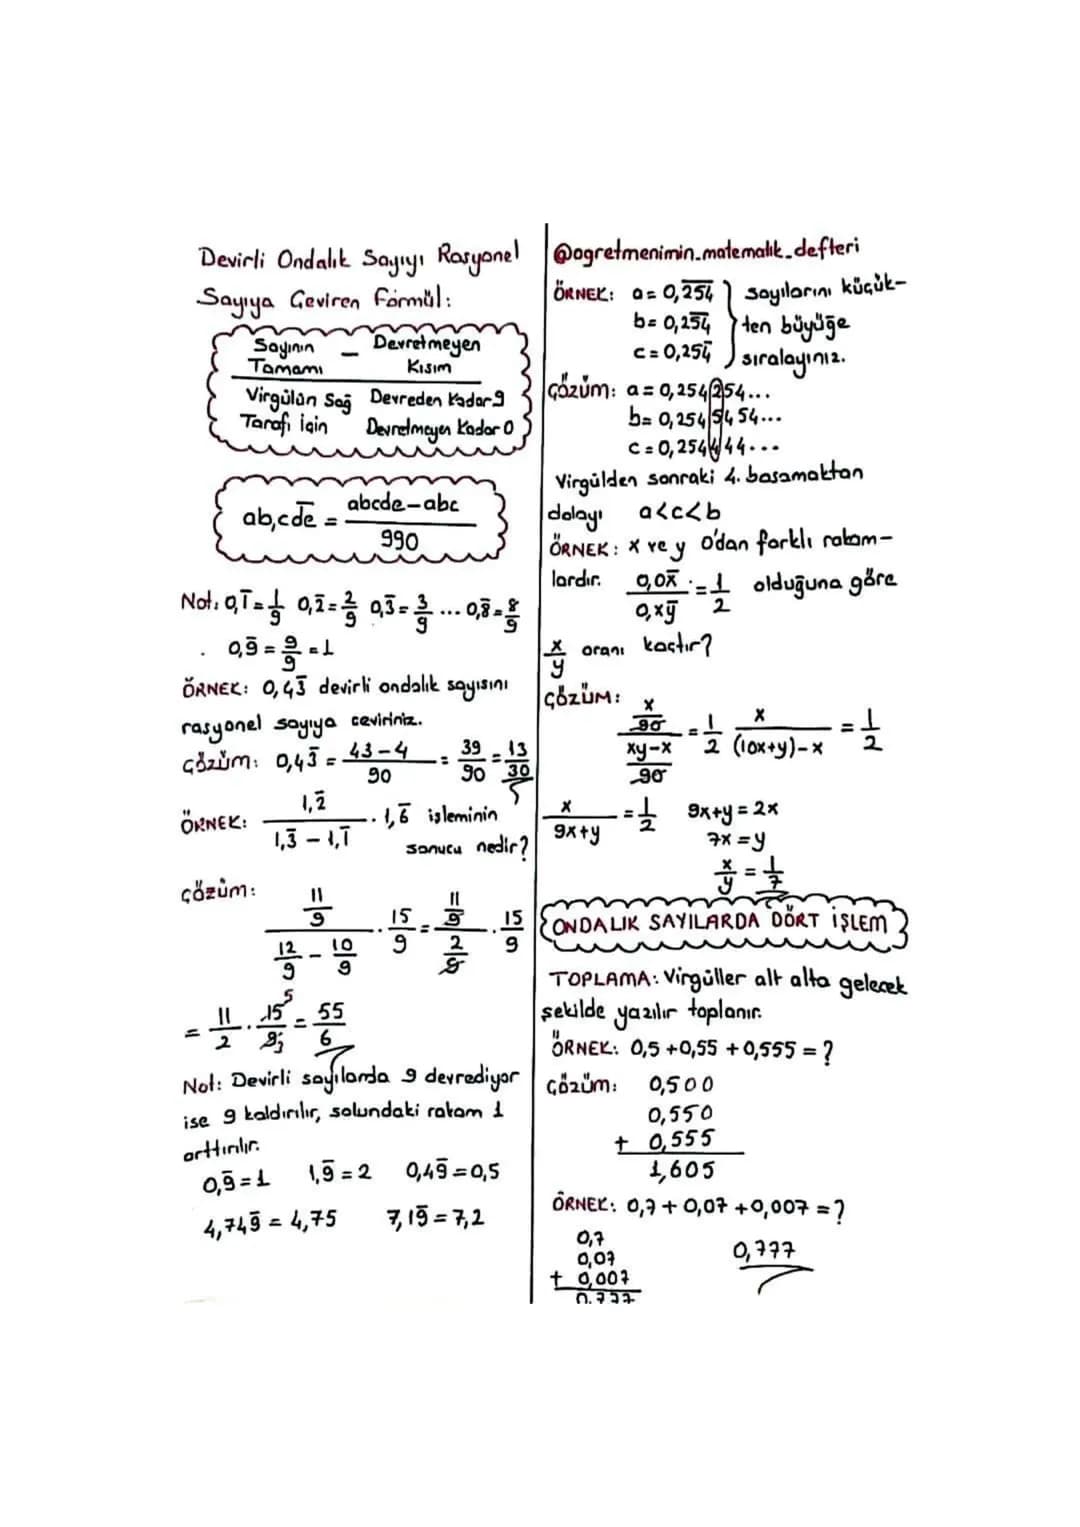 Devirli Ondalık Sayıyı Rasyonel
Sayıya Çeviren Formül:
Sayının Tamamı − Devretmeyen Kısım
Virgülün Sağ Tarafı İçin Devreden Kadar 9
Devretmeyen Kadar 0
ab,cd̅e̅ = abcde−abc / 990
Not: 0,1̅ = 1/9 0,2̅ = 2/9 0,3̅ = 3/9 ... 0,8̅ = 8/9
. 0,9̅ = 9/9 = 1
ÖRNEK: 0,43̅ devirli ondalık sayısını
rasyonel sayıya çeviriniz.
Çözüm: 0,43̅ = 43−4 / 90 = 39/90 = 13/30
ÖRNEK: 1,2̅ / 1,3̅ − 1,1̅ . 1,6̅ işleminin
sonucu nedir?
Çözüm:
11/9 / 12/9 − 10/9 . 15/9 = 11/9 / 2/9 . 15/9
= 11/2 . 15/9 5 3 = 55/6
Not: Devirli sayılarda 9 devrediyor
ise 9 kaldırılır, solundaki rakam 1
arttırılır.
0,9̅ = 1 1,9̅ = 2 0,49̅ = 0,5
4,749̅ = 4,75 7,19̅ = 7,2
@ogretmenimin_matematik_defteri
ÖRNEK: a = 0,2̅5̅4̅ } sayılarını küçük-
b = 0,25̅4̅ ten büyüğe
c = 0,254̅ sıralayınız.
Çözüm: a = 0,254254...
b = 0,2545454...
c = 0,254444...
Virgülden sonraki 4. basamaktan
dolayı a<c<b
ÖRNEK: x ve y 0'dan farklı rakam-
lardır. 0,0x̅ / 0,xy̅ = 1/2 olduğuna göre
x/y oranı kaçtır?
ÇÖZÜM:
x/90 / xy−x/90 = 1/2 x / (10x+y)−x = 1/2
x / 9x+y = 1/2 9x+y = 2x
7x = y
x/y = 1/7
ONDALIK SAYILARDA DÖRT İŞLEM
TOPLAMA: Virgüller alt alta gelecek
şekilde yazılır toplanır.
ÖRNEK: 0,5 +0,55 +0,555 = ?
Çözüm: 0,500
0,550
+ 0,555
1,605
ÖRNEK: 0,7 + 0,07 +0,007 = ?
0,7
0,07 0,777
+ 0,007
0,777